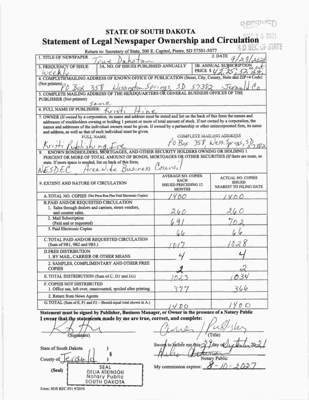 RECEIVED
S.D. SEC. OF STATE
STATE OF SOUTH DAKOTA
Statement of Legal Newspaper Ownership and Circulation
Return to: Secretary of State, 500 E. Capitol, Pierre, SD 57501-5077
1. TITLE OF NEWSPAPER True Dakotan 2. DATE 9/29/2021
3. FREQUENCY OF ISSUE weekly 3A. NO. OF ISSUES PUBLISHED ANNUALLY 3B. ANNUAL SUBSCRIPTION PRICE $
4. COMPLETE MAILING ADDRESS OF KNOWN OFFICE OF PUBLICATION (Street, City, County, State and ZIP+4 Code)
(Not printers) PO Box 358 Wessington Springs, SD 57382 Jerauld Co
5. COMPLETE MAILING ADDRESS OF THE HEADQUARTERS OR GENERAL BUSINESS OFFICES OF THE
PUBLISHER (Not printer) Same
6. FULL NAME OF PUBLISHER: Kristi Hine
7. OWNER (If owned by a corporation, its name and address must be stated and list on the back of this form the names and
addresses of stockholders owning or holding 1 percent or more of total amount of stock. If not owned by a corporation, the
names and addresses of the individual owners must be given. If owned by a partnership or other unincorporated firm, its name
and address, as well as that of each individual must be given.
FULL NAME COMPLETE MAILING ADDRESS
Kristi Publishing Inc PO Box 358 Wess. Spgs, SD 57382
8. KNOWN BONDHOLDERS, MORTGAGES, AND OTHER SECURITY HOLDERS OWNING OR HOLDING 1
PERCENT OR MORE OF TOTAL AMOUNT OF BONDS, MORTGAGES OR OTHER SECURITIES (If there are none, so
state. If more space is needed, list on back of this form.
NESDEC Areawide Business Council
9. EXTENT AND NATURE OF CIRCULATION AVERAGE NO. COPIES EACH ISSUED PRECEDING 12 MONTHS ACTUAL NO. COPIES ISSUED NEAREST TO FILING DATE
A. TOTAL NO. COPIES 1400 1400
B. PAID AND/OR REQUESTED CIRCULATION
1. Sales through dealers and carriers, street vendors,
and counter sales. 260 260
2. Mail Subscription
(Paid and or requested) 691 702
3. Paid Electronic Copies 66 66
C. TOTAL PAID AND/OR REQUESTED CIRCULATION
(Sum of 9B1, 9B2 and 9B3.) 1017 1028
D. FREE DISTRIBUTION
1. BY MAIL, CARRIER OR OTHER MEANS 4 4
2. SAMPLES, COMPLIMENTARY AND OTHER FREE
COPIES 2 2
E. TOTAL DISTRIBUTION (Sum of C, D1 and D2) 1023 1034
F. COPIES NOT DISTRIBUTED
1. Office use, left over, unaccounted, spoiled after printing 377 366
2. Return from News Agents
G. TOTAL (Sum of E, F1 and F2 – Should equal total shown in A.) 1400 1400
Statement must be signed by Publisher, Business Manager, or Owner in the presence of a Notary Public
I swear that the statements made by me are true, correct, and complete:
Owner / Publisher
(Signature) (Title)
State of South Dakota
Sworn to before me this 29 day of September 2021
County of Jerauld
Notary Public
(Seal)
SEAL
DELIA ATKINSON
Notary Public
SOUTH DAKOTA
My commission expires: 8-10-2027